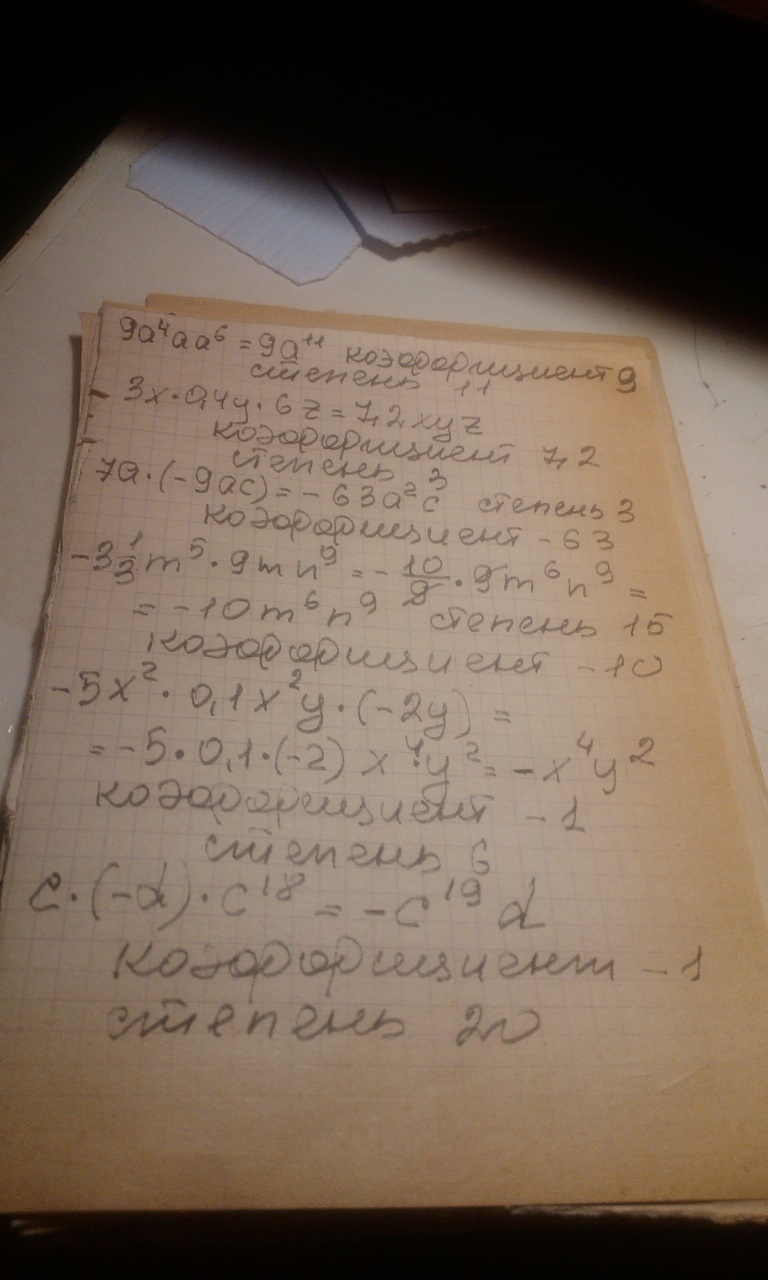 9a⁴aa⁶ = 9a¹¹ коэффициент 9
степень 11
3x·0,4y·6z = 7,2xyz
коэффициент 7,2
степень 3
7a·(-9ac) = -63a²c степень 3
коэффициент -63
-3 1/3 m⁵·9mn⁹ = -10/9·9m⁶n⁹ =
= -10m⁶n⁹ степень 15
коэффициент -10
-5x²·0,1x²y·(-2y) =
= -5·0,1·(-2)x⁴y² = -x⁴y²
коэффициент -1
степень 6
c·(-d)·c¹⁸ = -c¹⁹d
коэффициент -1
степень 20